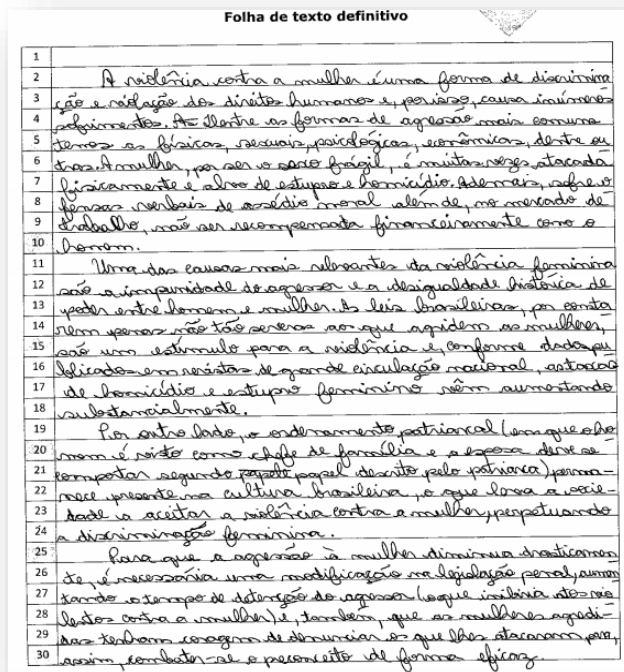 Folha de texto definitivo
1
2 A violência contra a mulher é uma forma de discrimina
3 ção e violação dos direitos humanos e, por isso, causa inúmeros
4 sofrimentos. Dentre as formas de agressão mais comuns
5 temos as físicas, sexuais, psicológicas, econômicas, dentre ou
6 tras. A mulher, por ser o sexo frágil, é muitas vezes atacada
7 fisicamente e alvo de estupro e homicídio. Ademais, sofre o
8 fensas verbais de assédio moral alem de, no mercado de
9 trabalho, não ser recompensada financeiramente como o
10 homem.
11 Uma das causas mais relevantes da violência feminina
12 são a impunidade do agressor e a desigualdade histórica de
13 poder entre homem e mulher. As leis brasileiras, por consta
14 rem penas não tão severas aos que agridem as mulheres,
15 são um estímulo para a violência e, conforme dados pu
16 blicados em revistas de grande circulação nacional, as taxas
17 de homicídio e estupro feminino vêm aumentando
18 substancialmente.
19 Por outro lado, o ordenamento patriarcal (em que o ho
20 mem é visto como chefe de família e a esposa deve se
21 comportar segundo papel descrito pelo patriarca) perma-
22 nece presente na cultura brasileira, o que leva a socie-
23 dade a aceitar a violência contra a mulher, perpetuando
24 a discriminação feminina.
25 Para que a agressão à mulher diminua drasticamen
26 te, é necessária uma modificação na legislação penal, aumen
27 tando o tempo de detenção do agressor (o que inibiria atos vio
28 lentos contra a mulher) e, também, que as mulheres agredi-
29 das tenham coragem de denunciar os que lhes atacaram para,
30 assim, combater-se o preconceito de forma eficaz.